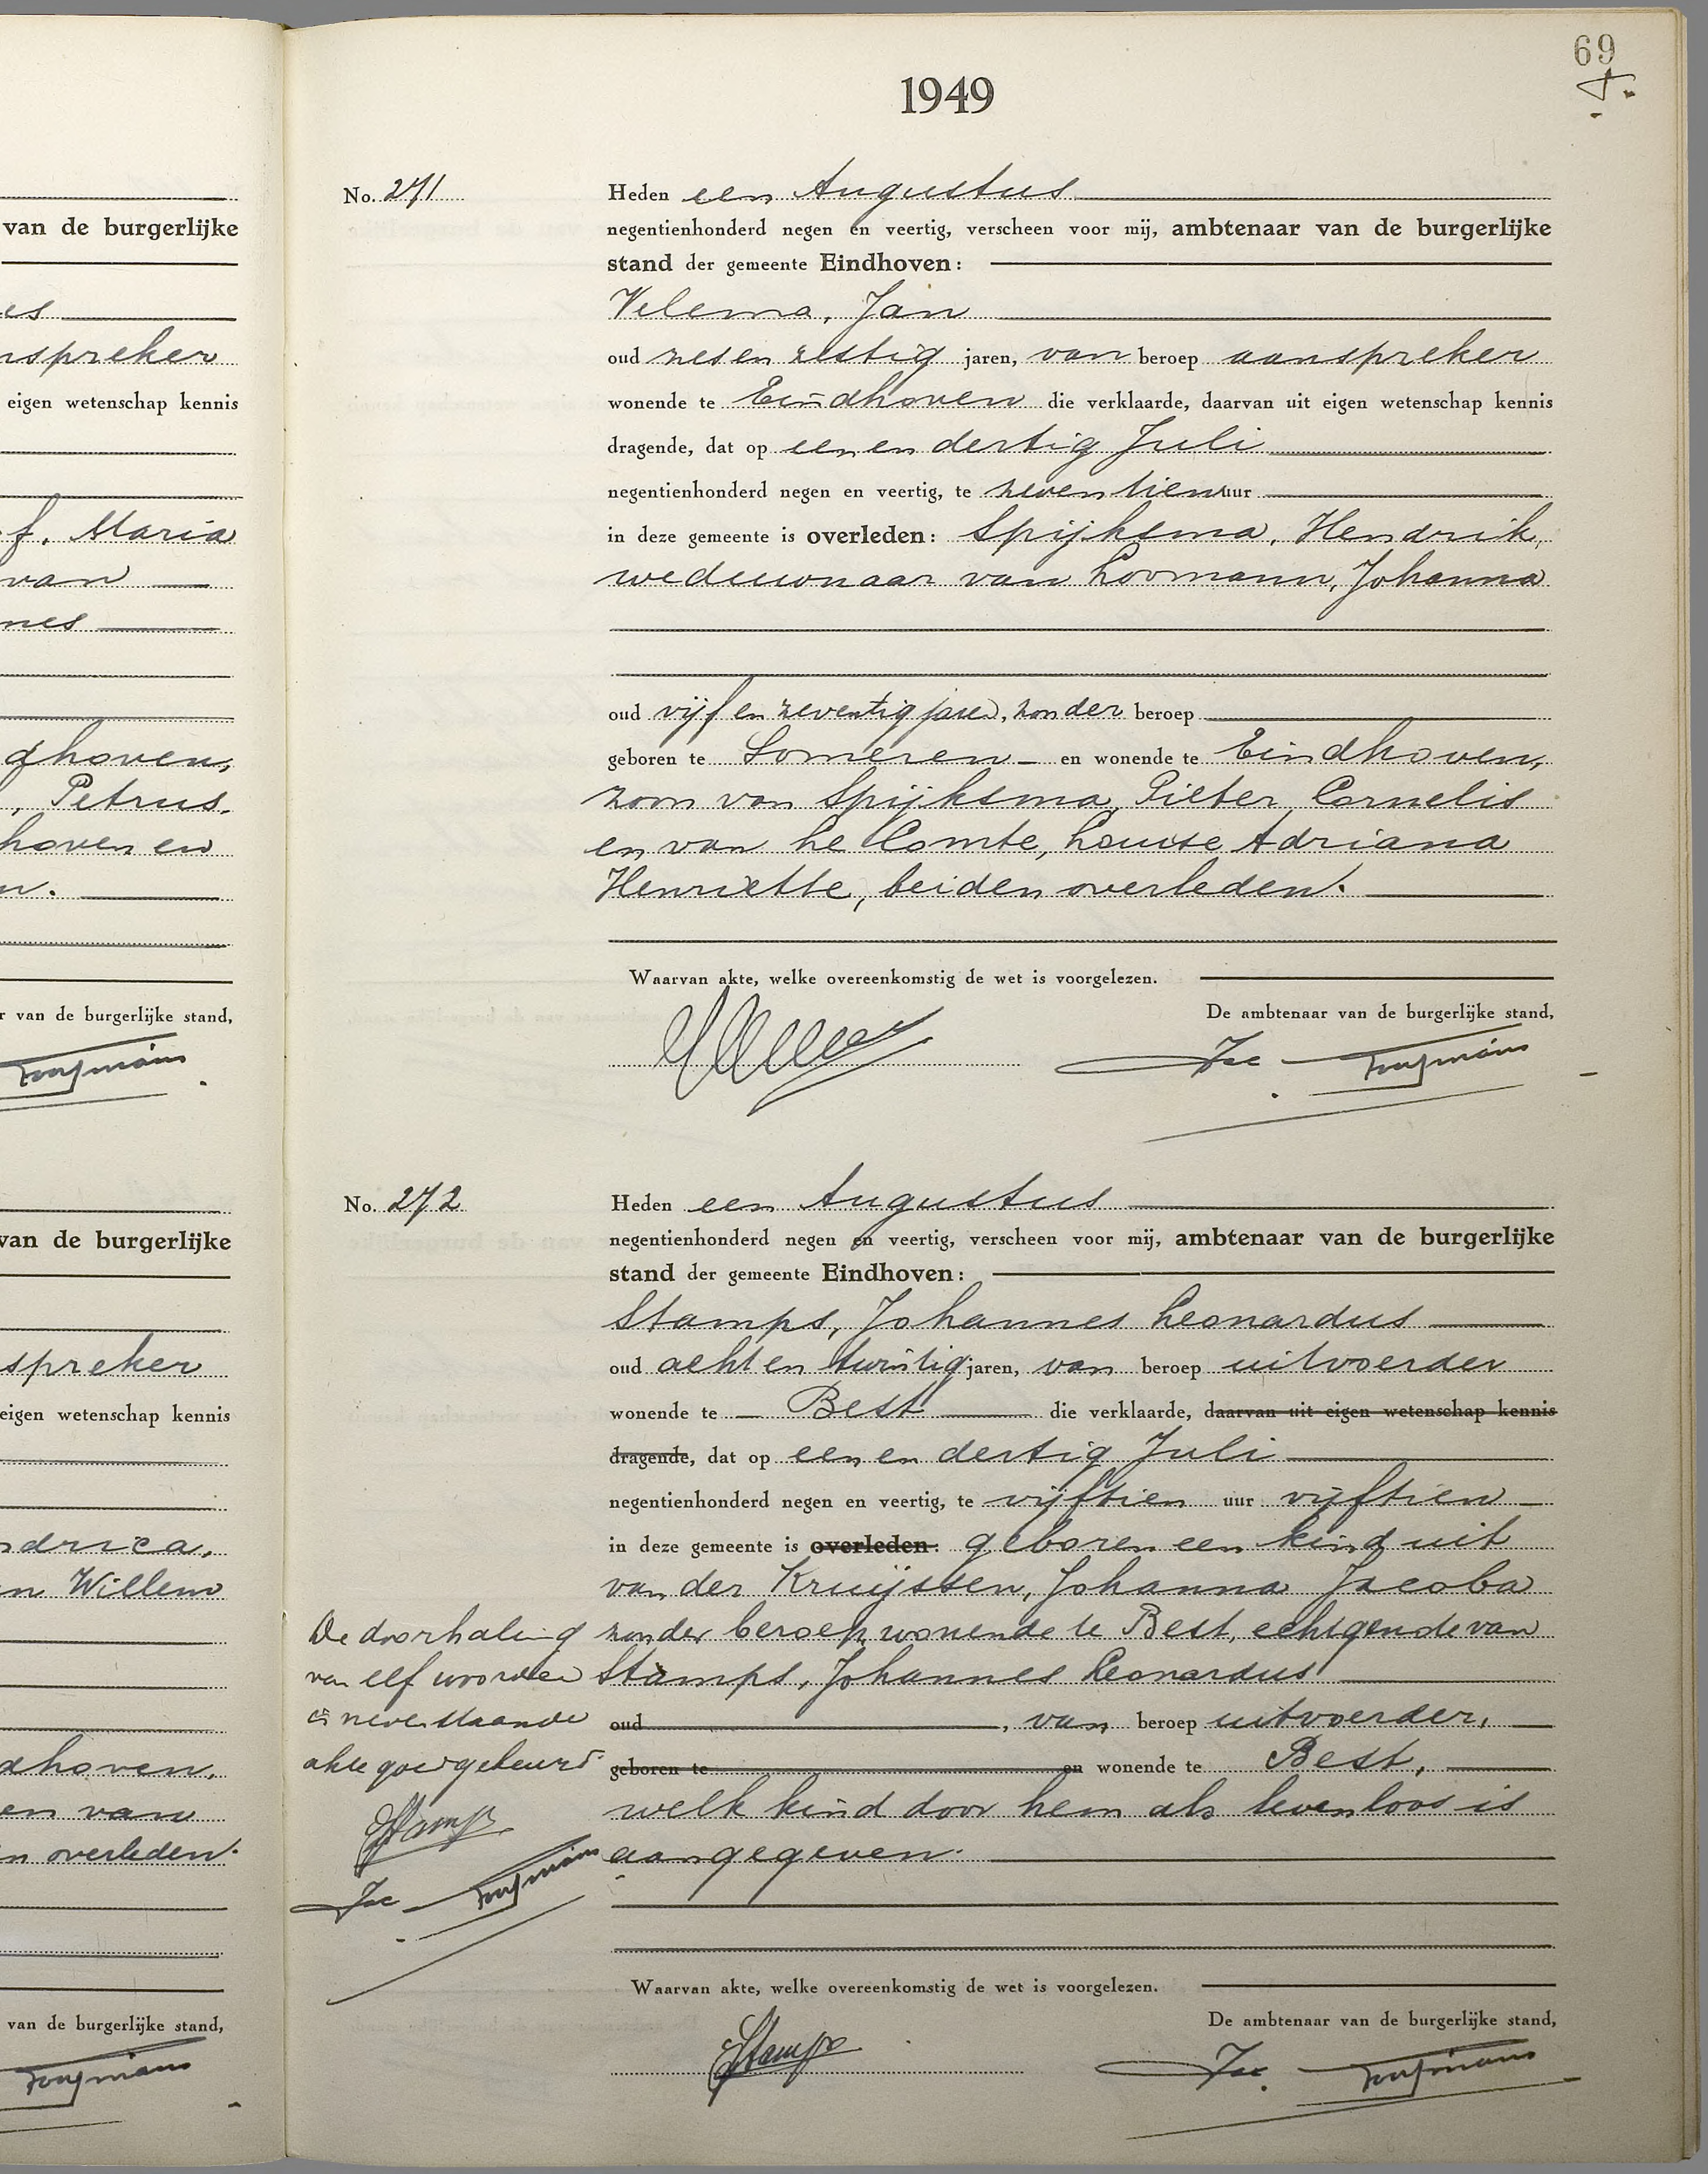 van de burgerlijke
es
nspreker
eigen wetenschap kennis
f. Maria
van
nes
dhoven,
, Petrus.
hoven en
n.
r van de burgerlijke stand,
van de burgerlijke
spreker
eigen wetenschap kennis
ndrica.
n Willem
dhoven,
en van
n overleden.
van de burgerlijke stand,
69
1949
No. 271
Heden een Augustus
negentienhonderd negen en veertig, verscheen voor mij, ambtenaar van de burgerlijke
stand der gemeente Eindhoven:
Velema, Jan
oud zes en zestig jaren, van beroep aanspreker
wonende te Eindhoven die verklaarde, daarvan uit eigen wetenschap kennis
dragende, dat op een en dertig Juli
negentienhonderd negen en veertig, te zeventien uur
in deze gemeente is overleden: Spijksma, Hendrik,
weduwnaar van Loomann, Johanna
oud vijf en zeventig jaren, zonder beroep
geboren te Someren en wonende te Eindhoven,
zoon van Spijksma, Pieter Cornelis
en van Le Comte, Louise Adriana
Henriëtte, beiden overleden.
Waarvan akte, welke overeenkomstig de wet is voorgelezen.
De ambtenaar van de burgerlijke stand,
No. 272
Heden een Augustus
negentienhonderd negen en veertig, verscheen voor mij, ambtenaar van de burgerlijke
stand der gemeente Eindhoven:
Stamps, Johannes Leonardus
oud acht en twintig jaren, van beroep uitvoerder
wonende te Best die verklaarde, daarvan uit eigen wetenschap kennis
dragende, dat op een en dertig Juli
negentienhonderd negen en veertig, te vijftien uur vijftien
in deze gemeente is overleden: geboren een kind uit
van der Kruijssen, Johanna Jacoba
zonder beroep, wonende te Best, echtgenote van
Stamps, Johannes Leonardus
oud , van beroep uitvoerder,
geboren te en wonende te Best,
welk kind door hem als levenloos is
aangegeven.
De doorhaling
van elf woorden
in nevenstaande
akte goedgekeurd
Stamps
Waarvan akte, welke overeenkomstig de wet is voorgelezen.
De ambtenaar van de burgerlijke stand,
Stamps